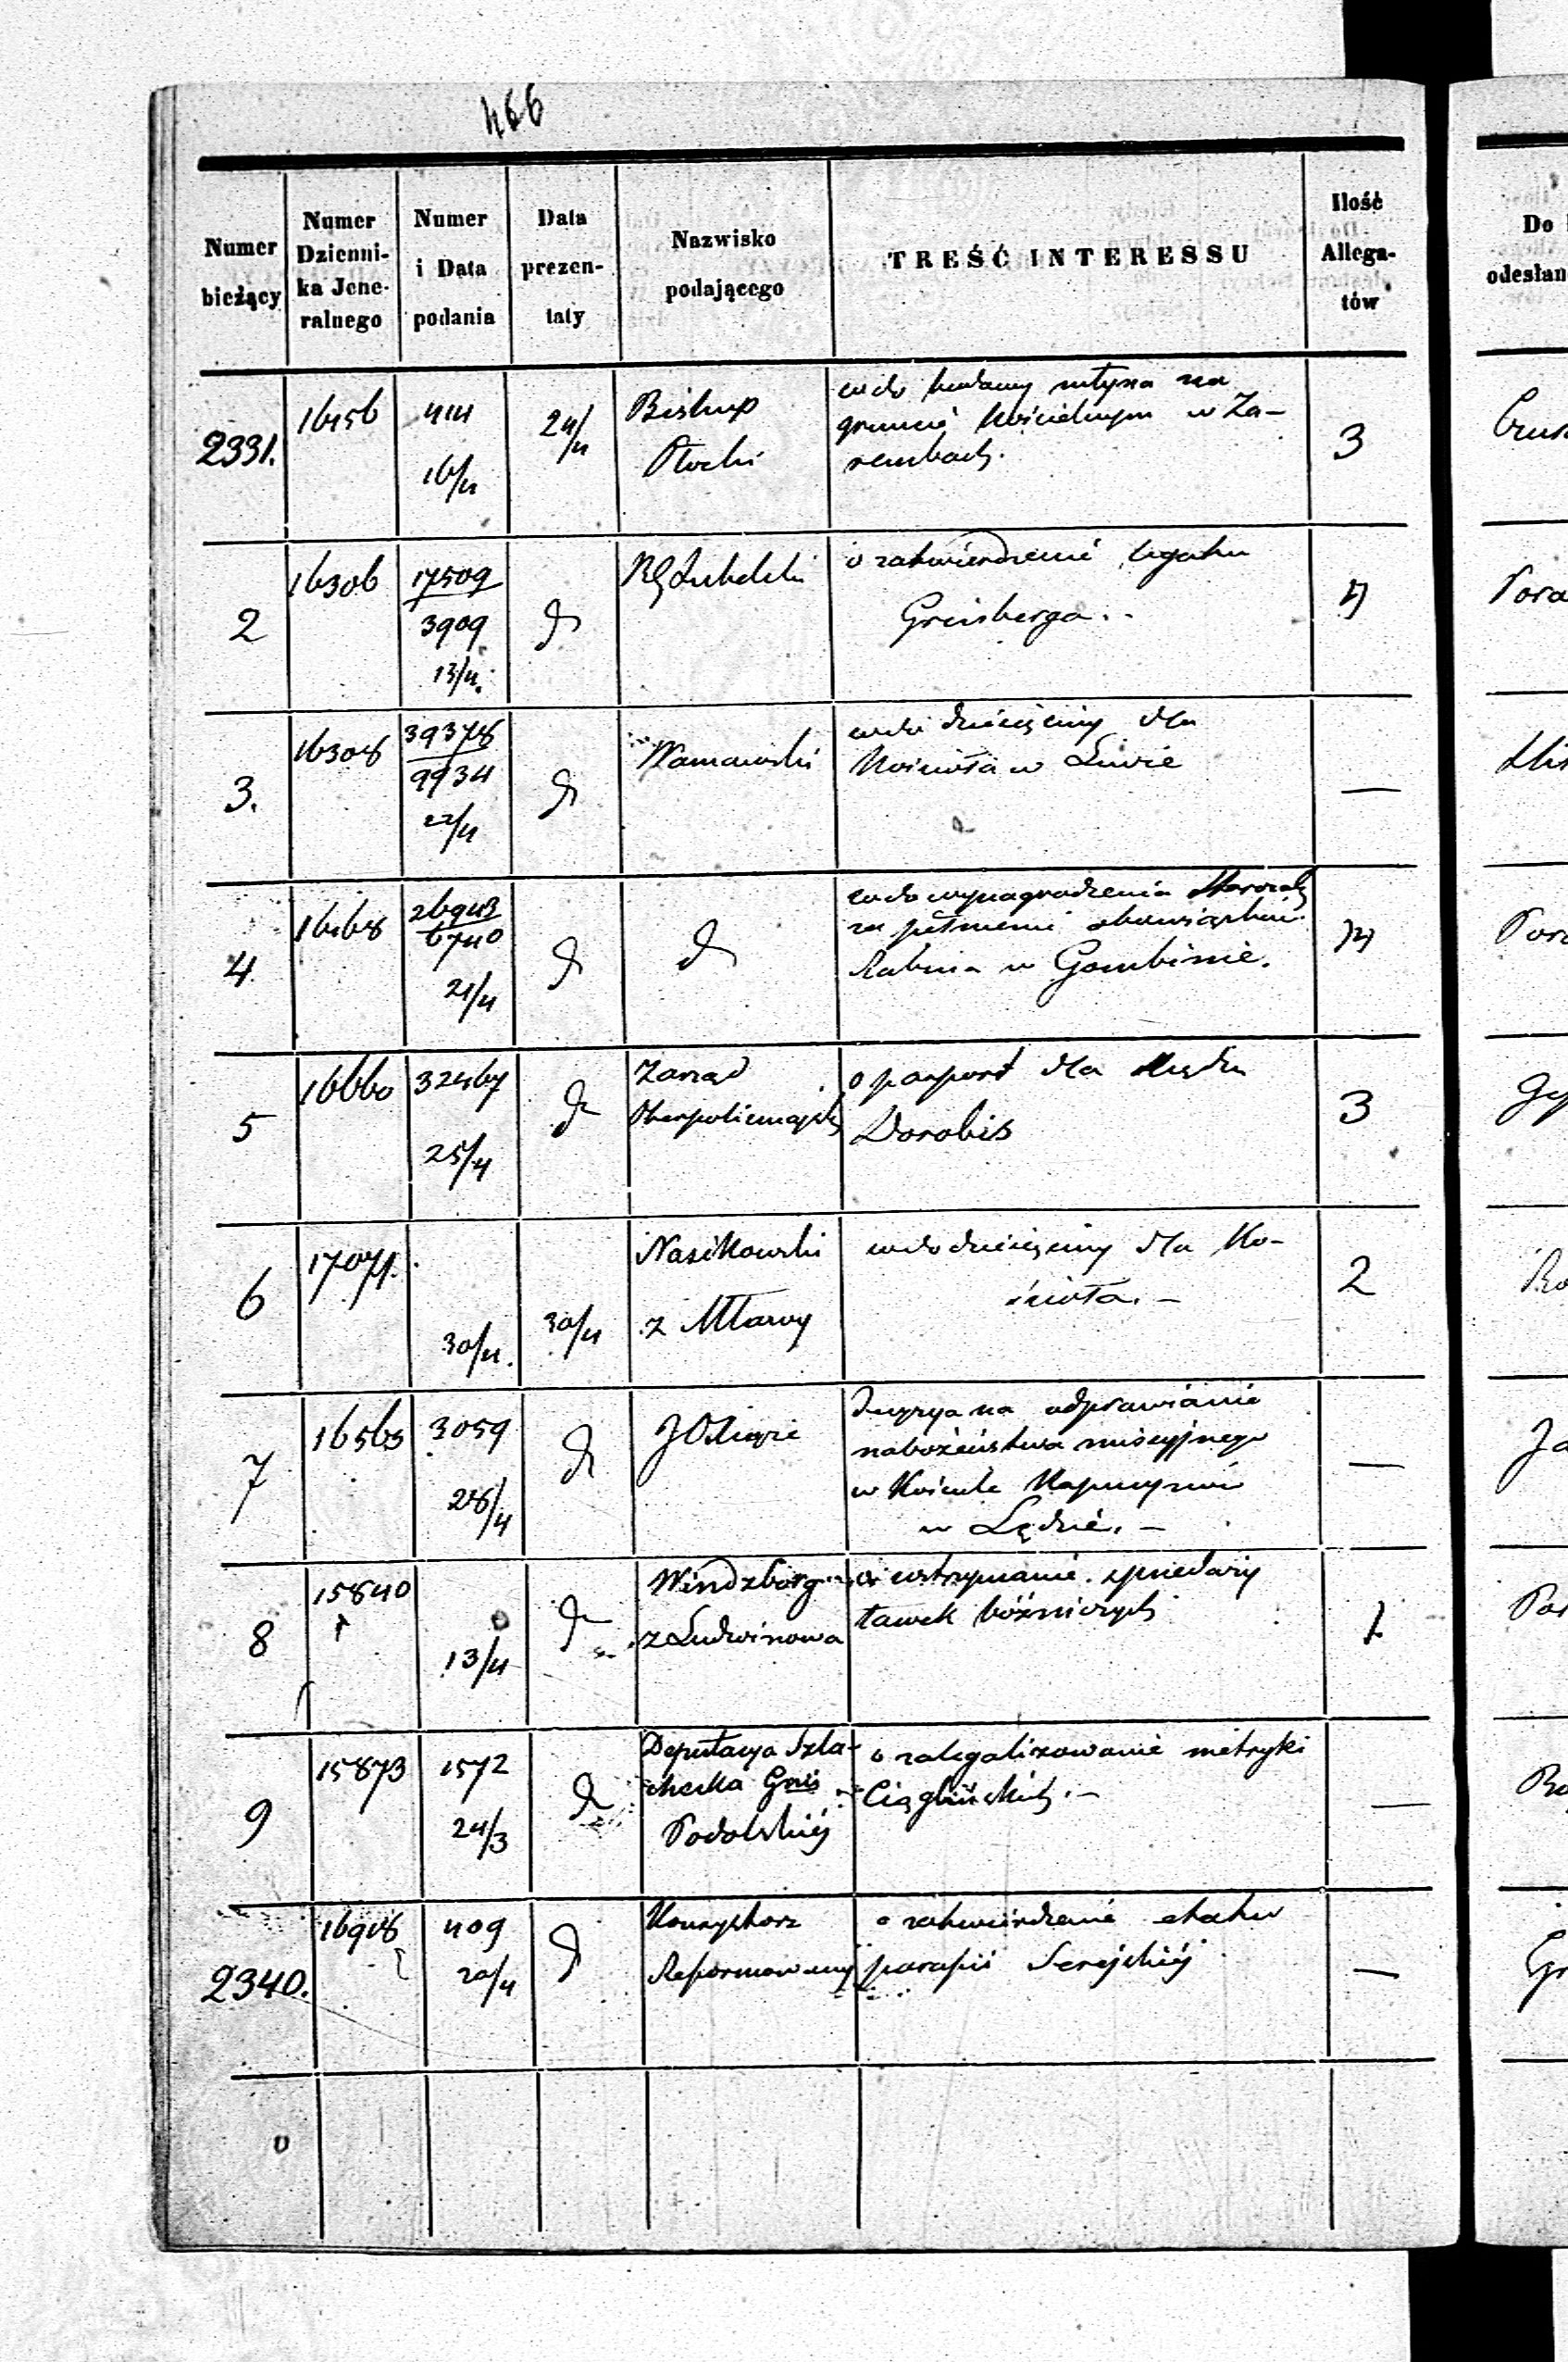 466
Numer bieżący
Numer Dzienni- ka Jene- ralnego
Numer i Data podania
Data prezen- taty
Nazwisko podającego
TREŚĆ INTERESSU
Ilość Allega- tów
Do
odesłan
2331.
16456
414
16/4
24/4
Biskup
Płocki
wdo budowy młyna na
gruncie kościelnym w Za-
rembach.
3
2
16306
17509
3909
13/4.
d
RG Lubelski
o zatwierdzenie legatu
Greisberga.
4
3.
16308
39378
9934
22/4
d
Warszawski
wdo dziesięciny dla
Kościoła w Liwie
—
4
26943
6740
21/4
d
d
wdo wynagrodzenia
za pełnienie obowiązków
Rabina w Gombinie.
5
16660
32467
25/4
d
Zarząd
Oberpolicmajstr
o paszport dla
Dorobis
3
6
17071.
30/4.
30/4
Nasikowski
z Mławy
wdo dziesięciny dla Ko-
ścioła. —
2
7
16563
3059
28/4
d
JO Xiąże
Decyzya na odprawianie
nabożeństwa missyjnego
w Kościele Kapucynów
w Lędzie. —
—
8
15840
13/4
d
Windzberg
z Ludwinowa
o wstrzymanie sprzedaży
ławek bóżniczych
1
9
15873
1572
24/3
d
Deputacya Szla-
checka Gnii
Podolskiéj
o zalegalizowanie metryki
Ciąglińskich. —
—
2340.
16918
409
20/4
d
Konsystorz
Reformowany
o zatwierdzenie etatu
parafii Serejskiéj
—